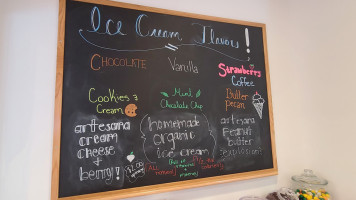 Ice Cream Flavors!
CHOCOLATE
Vanilla
Strawberry
Coffee
Cookies &
Cream
Mint
Chocolate Chip
Butter
pecan
artesana
cream
cheese
&
berry!
$2.00
homemade
organic
ice cream
artisana
peanut
butter
explosion!
ALL